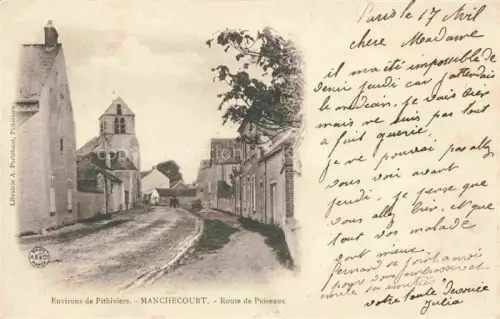 Librairie A. Perthinst, Pithiviers
Environs de Pithiviers. - MANCHECOURT. - Route de Puiseaux
Paris le 17 Avril
chere Madame
il m'a été impossible de
venir jeudi car j'attendais
le médecin. je vais bien
mais ne suis pas tout
a fait guerie.
Je ne pourrai pas aller
vous voir avant
jeudi. je pense que
vous allez bien. et que
tout vos malade
vont mieux.
Fernand se joint a moi
pour vous embrasser et
votre toute devouée
Julia